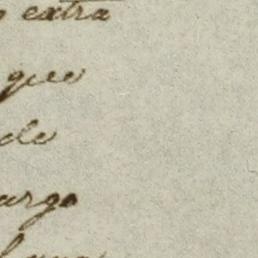 extra
que
de
argo